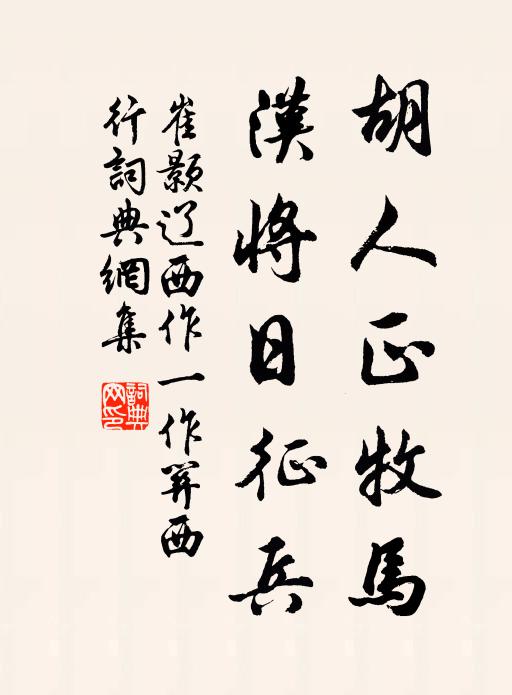 胡人正牧馬
漢將日征兵
崔顥辽西作一作䍁西
行詞典網集
詞典
网印